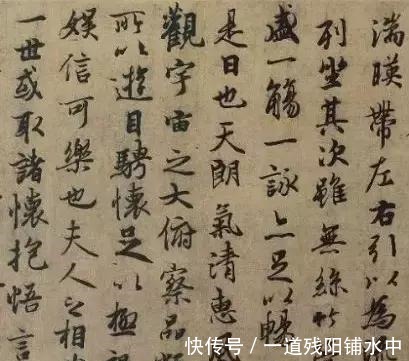 湍暎帶左右引以為
列坐其次雖無絲竹
盛一觴一詠亦足以暢
是日也天朗氣清惠風
觀宇宙之大俯察品類
所以遊目騁懷足以極
娛信可樂也夫人之相
一世或取諸懷抱悟言
快传号 / 一道残阳铺水中